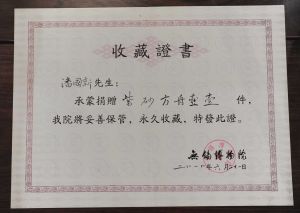 收藏證書
潘國新先生：
承蒙捐贈 紫砂方舟壺壹 件，
我院將妥善保管，永久收藏，特發此證。
無錫博物院
二〇一八年六月二十一日